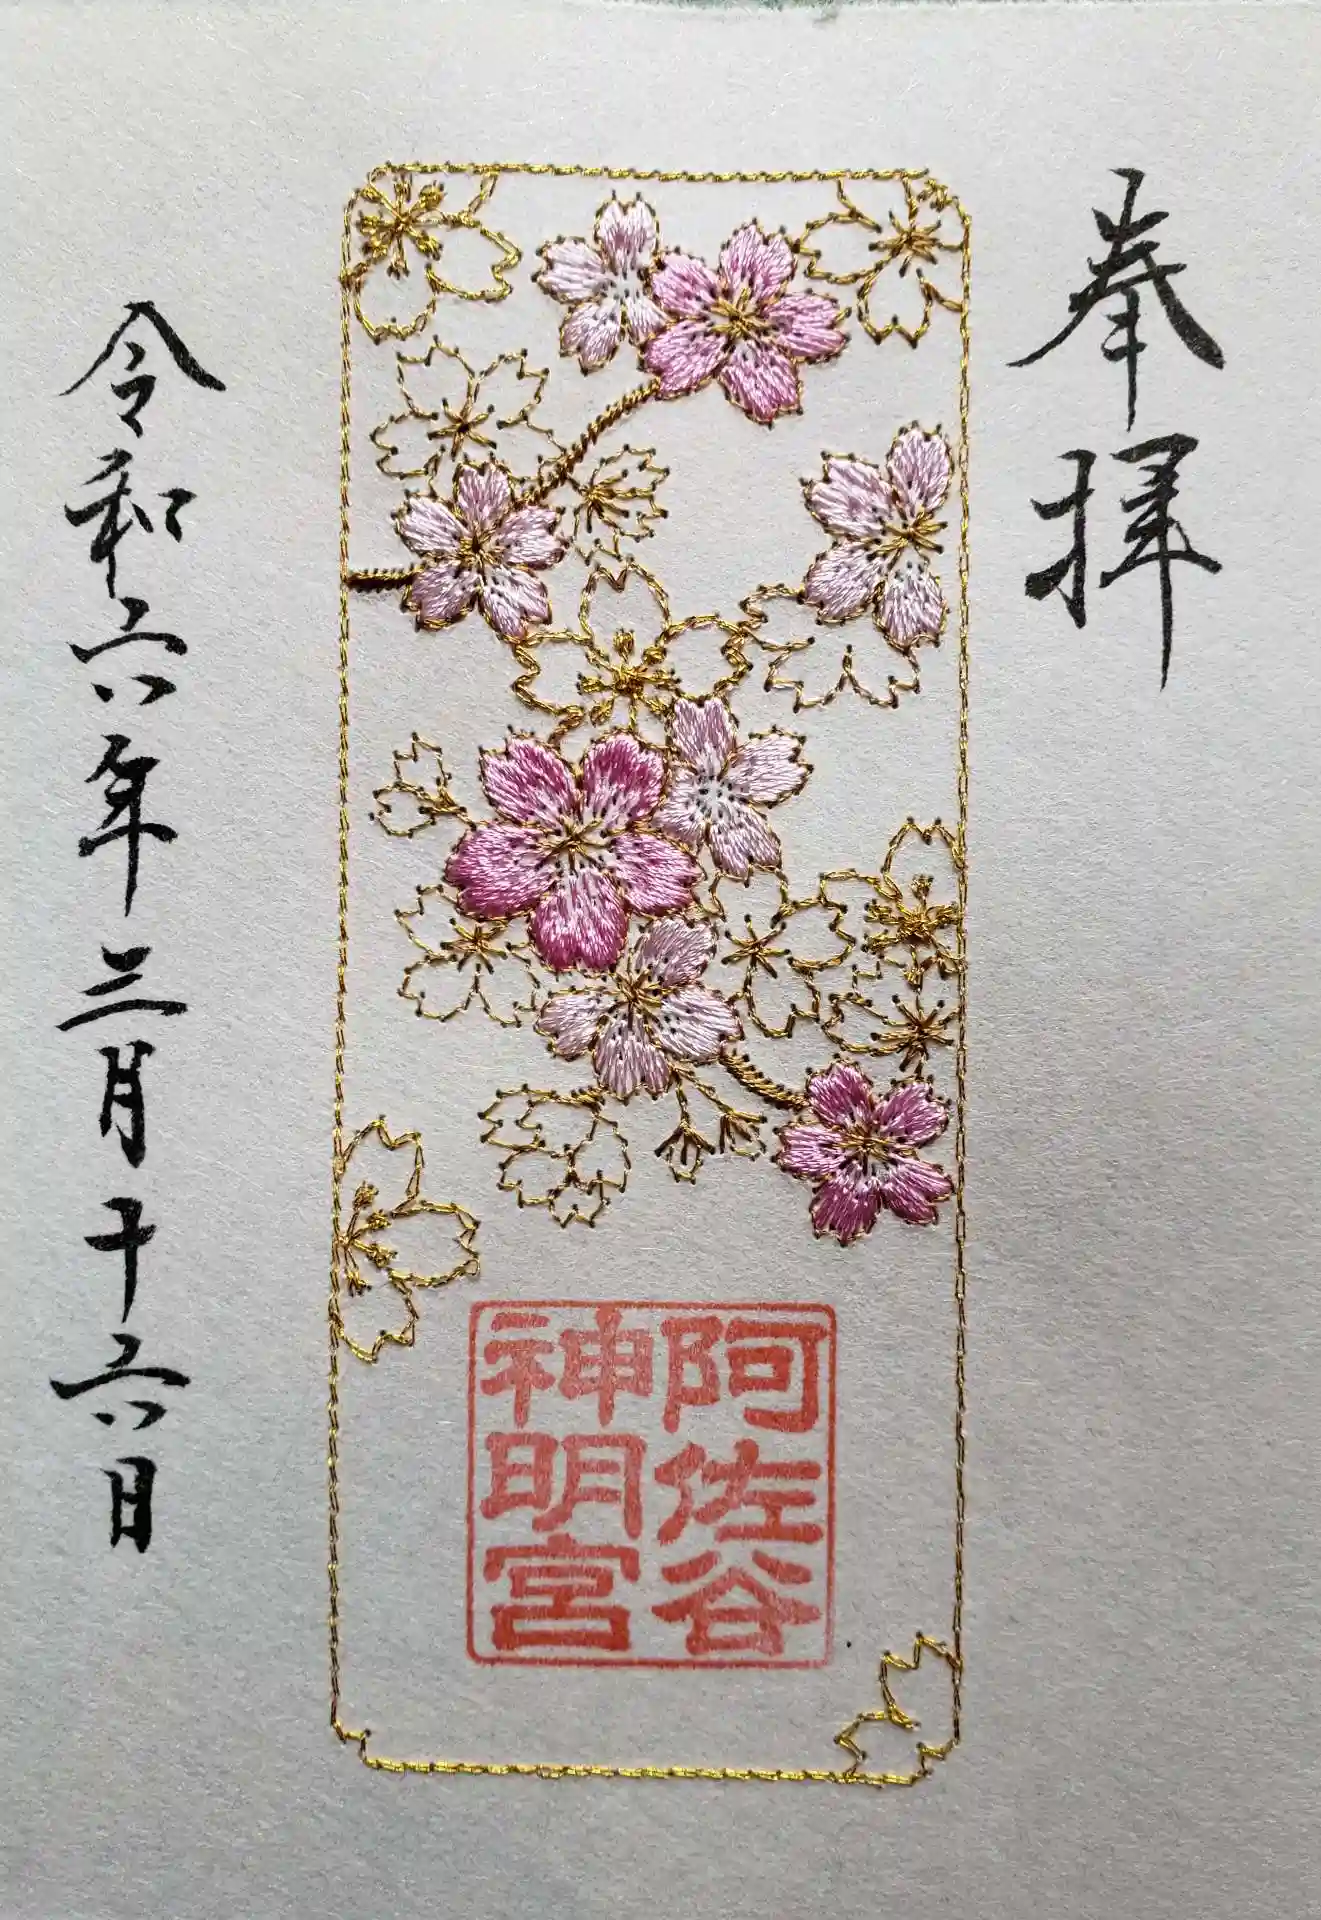 奉拝
阿佐谷
神明宮
令和六年三月十六日